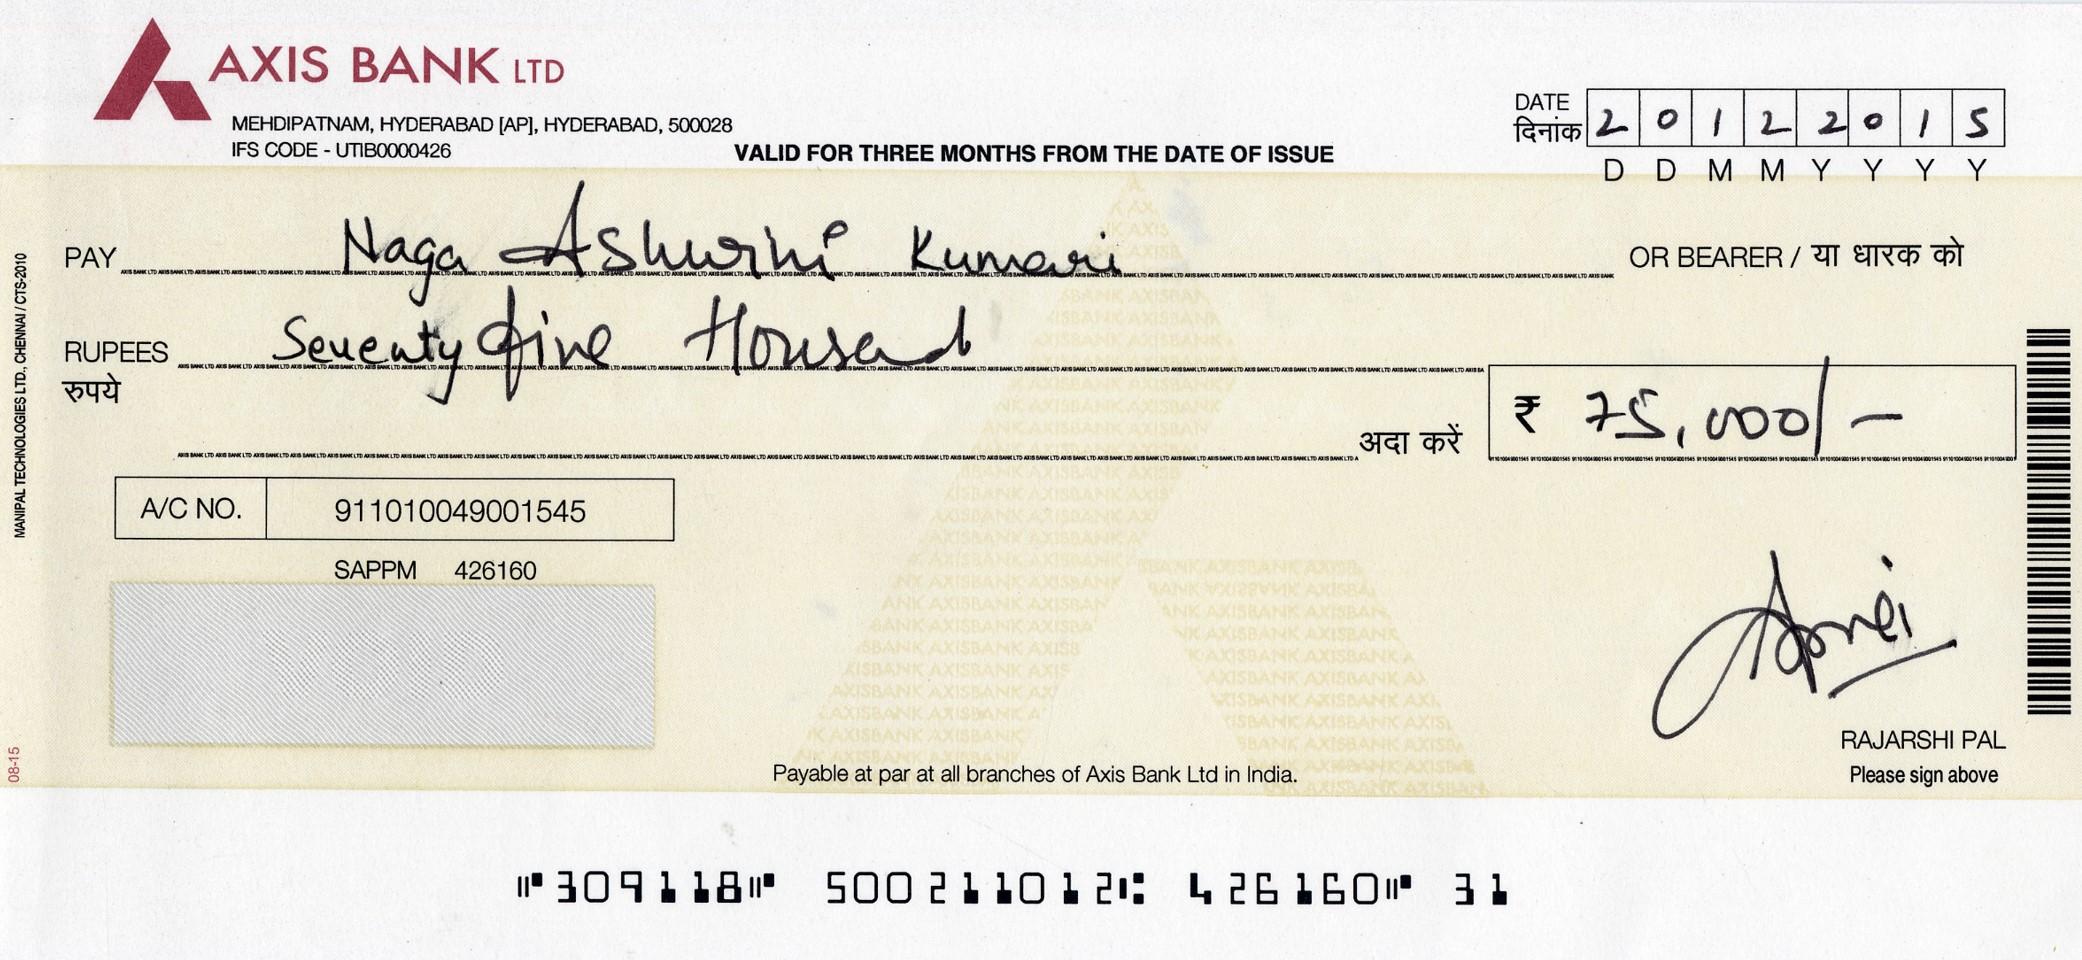 AXIS BANK LTD
MEHDIPATNAM, HYDERABAD [AP], HYDERABAD, 500028
IFS CODE - UTIB0000426
VALID FOR THREE MONTHS FROM THE DATE OF ISSUE
DATE
दिनांक 2 0 1 2 2 0 1 5
D D M M Y Y Y Y
PAY Naga Ashwini Kumari OR BEARER / या धारक को
RUPEES Seventy five Thousand
रुपये
अदा करें ₹ 75,000/-
A/C NO. 911010049001545
SAPPM 426160
RAJARSHI PAL
Please sign above
Payable at par at all branches of Axis Bank Ltd in India.
MANIPAL TECHNOLOGIES LTD., CHENNAI / CTS-2010
08-15
⑈309118⑈ 500211012⑆ 426160⑈ 31